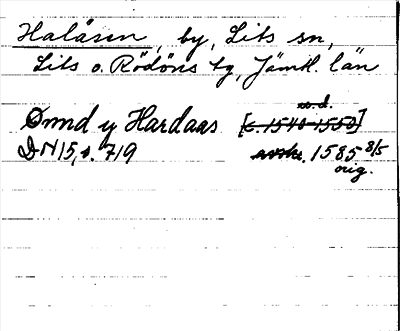 Halåsen, by, Lits sn,
Lits o. Rödöns tg, Jämtl. län
u.d.
Ømnd y Hardaas [c. 1540-1550]
DN 15, s. 719 avskr. 1585 8/5
orig.